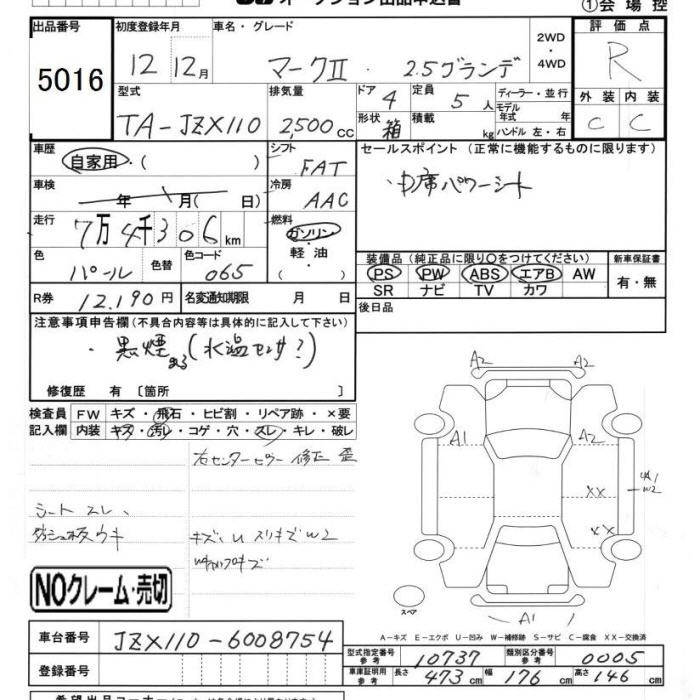 オークション出品申込書 ①会場控
出品番号 初度登録年月 車名・グレード 2WD・4WD 評価点
5016 12 12月 マークⅡ・2.5グランデ R
型式 排気量 ドア 4 定員 5人 ディーラー・並行 外装 内装
モデル年式 年式
TA-JZX110 2,500cc 形状 箱 積載 kg ハンドル 左・右 C C
車歴 自家用・( ) シフト FAT セールスポイント (正常に機能するものに限ります)
車検 年 月( 日) 冷房 AAC ・中席パワーシート
走行 7万4千306km 燃料 ガソリン・軽油・( )
色 パール 色替 色コード 065 装備品 (純正品に限り○をつけてください) 新車保証書
PS PW ABS エアB AW 有・無
SR ナビ TV カワ
R券 12,190円 名変通知期限 月 日 後日品
注意事項申告欄 (不具合内容等は具体的に記入して下さい)
・黒煙 まる(水温センサ?)
修復歴 有 〔箇所 〕
検査員 FW キズ・飛石・ヒビ割・リペア跡・×要
記入欄 内装 キズ・汚レ・コゲ・穴・スレ・キレ・破レ
右センターピラー修正 歪
シートスレ、
ダッシュ板ウキ キズ・U スリキズW2
A2 A2
A1 A2
XX W2
XX
スペア A1
NOクレーム・売切
A-キズ E-エクボ U-凹み W-補修跡 S-サビ C-腐食 XX-交換済
車台番号 JZX110-6008754
登録番号
型式指定番号 参考 10737 類別区分番号 参考 0005
車庫証明用 参考 長さ 473cm 幅 176cm 高さ 146cm
希望出品コーナー